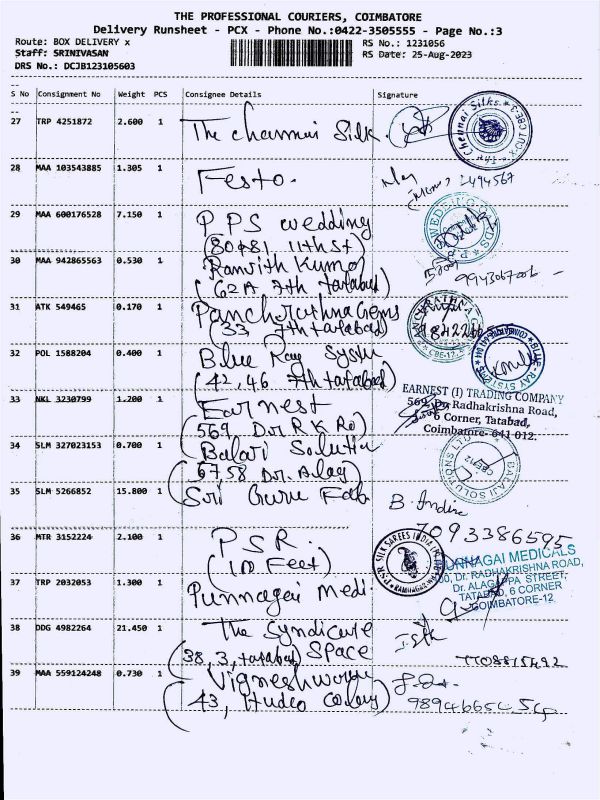 THE PROFESSIONAL COURIERS, COIMBATORE
Delivery Runsheet - PCX - Phone No.:0422-3505555 - Page No.:3
Route: BOX DELIVERY x
RS No.: 1231056
Staff: SRINIVASAN
RS Date: 25-Aug-2023
DRS No.: DCJB123105603
S No Consignment No Weight PCS Consignee Details Signature
27 TRP 4251872 2.600 1 The Chennai Silk.
Chennai Silks
28 MAA 103543885 1.305 1 Festo.
29 MAA 600176528 7.150 1 PPS wedding
(80&81 11th St)
WEDDING CARDS
30 MAA 942865563 0.530 1 Ranvith Kumar
(62A 7th tatabad)
31 ATK 549465 0.170 1 Pancharathna Gems
(33, 7th tatabad)
32 POL 1588204 0.400 1 Blue Ray System
(42, 46 7th tatabad)
BLUE-RAY SYSTEMS
33 NKL 3230799 1.200 1 Earnest
(569 Dr R K Rd)
EARNEST (I) TRADING COMPANY
569, Dr. Radhakrishna Road,
6 Corner, Tatabad,
Coimbatore- 641 012.
34 SLM 327023153 0.700 1 Balaji Solution
(67,58 Dr. Alag)
BALAJI SOLUTIONS LTD
35 SLM 5266852 15.800 1 Sri Guru Fab
7093386595
36 MTR 3152224 2.100 1 P S R.
(100 Feet)
PSR SILK SAREES INDIA
37 TRP 2032053 1.300 1 Punnagai Medi
PUNNAGAI MEDICALS
Dr. RADHAKRISHNA ROAD,
Dr. ALAGAPPA STREET,
TATABAD, 6 CORNER
COIMBATORE-12
38 DDG 4982264 21.450 1 The Syndicate
(38,3, tatabad) Space
39 MAA 559124248 0.730 1 Vigneshwara
(43, Hudco Colony)